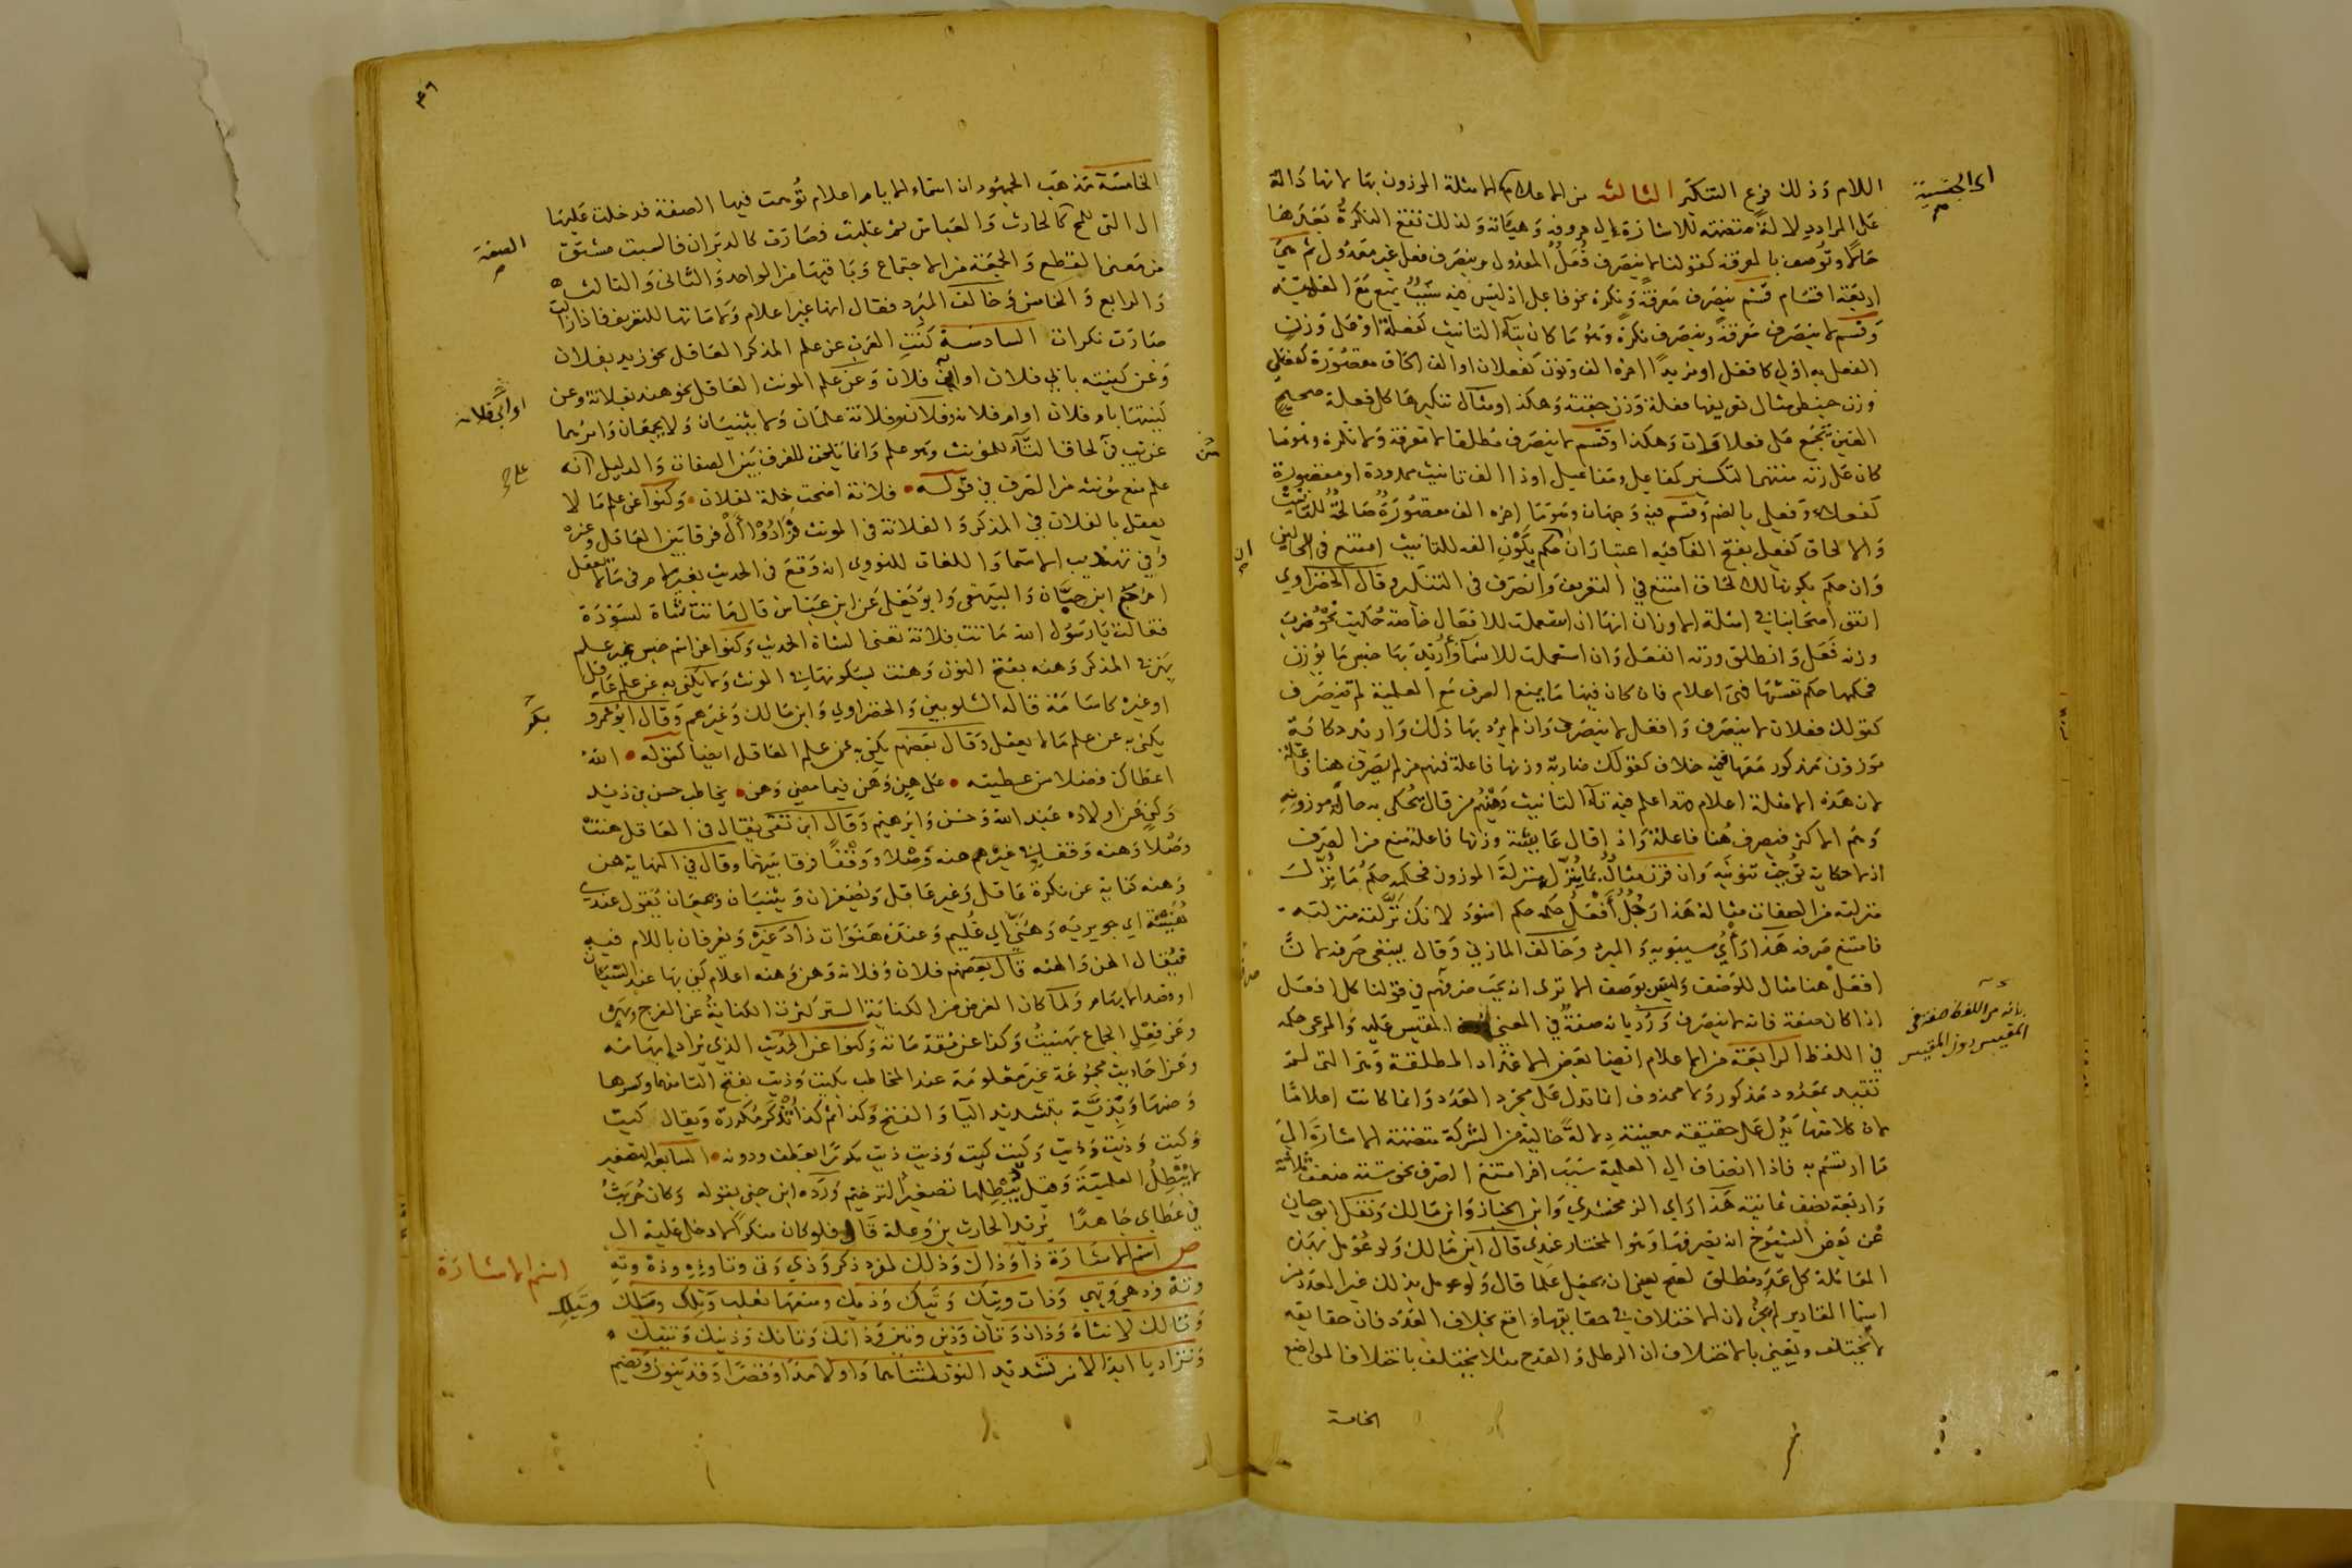 اللام وذلك فرع التنكير الثالثة من الاعلام الامثلة الموزون بها لانها دالة
على المراد دلالة متضمنة للاشارة الى حروفه وهيئاته ولذلك تقع النكرة بعدها
حالا وتوصف بالمعرفة كقولنا لا ينصرف فعل المعدول وينصرف فعل غير معدول ثم هي
اربعة اقسام قسم ينصرف معرفة ونكرة نحو فاعل اذ ليس فيه سبب يمنع مع العلمية
وقسم لا ينصرف معرفة وينصرف نكرة وهو ما كان بتاء التانيث كفعلة او على وزن
الفعل به اولى كافعل او مزيدا اخره الف ونون كفعلان او الف الحاق مقصورة كفعلى
وزن حبنطى مثال تعريفها فعلة وزن جفنة وهكذا ومثال تنكيرها كل فعلة صحيح
العين يجمع على فعلات وهكذا وقسم لا ينصرف مطلقا لا معرفة ولا نكرة وهو ما
كان على زنة منتهى التكسير كمفاعل ومفاعيل او ذا الف تانيث ممدودة او مقصورة
كفعلاء وفعلى بالضم وقسم فيه وجهان وهو ما اخره الف مقصورة صالحة للتانيث
والالحاق كفعلى بفتح الفاء فيه اعتباران حكم بكون الفه للتانيث امتنع في الحالين
وان حكم بكونها للالحاق امتنع في التعريف وانصرف في التنكير وقال الخضراوي
اتفق اصحابنا في امثلة الاوزان انها ان استعملت للافعال خاصة حكيت نحو ضرب
وزنه فعل وانطلق وزنه انفعل وان استعملت للاسماء واريد بها جنس ما يوزن
فحكمها حكم نفسها فهي اعلام فان كان فيها ما يمنع الصرف مع العلمية لم تنصرف
كقولك فعلان لا ينصرف وافعل لا ينصرف وان لم يرد بها ذلك واريد حكاية
موزون مذكور معها ففيه خلاف كقولك ضاربة وزنها فاعلة فمنهم من لم يصرف هنا فاعلة
لان هذه الامثلة اعلام هذا علم فيه تاء التانيث ومنهم من قال يحكى به حالة موزونه
وهم الاكثر فيصرف هنا فاعلة واذا قال عايشة وزنها فاعلة منع من الصرف
اذ لا حكاية توجب تنوينه وان قرن مثال بما ينزل منزلة الموزون فحكمه حكم ما نزل
منزلته من الصفات مثاله هذا رجل افعل حكمه حكم اسود لانك نزلته منزلته
فامتنع صرفه هذا راي سيبويه والمبرد وخالف المازني وقال ينبغي صرفه لان
افعل هنا مثال للوصف وليس بوصف الا ترى انه يجب صرفهم في قولنا كل افعل
اذا كان صفة فانه لا ينصرف ورد بانه صفة في المعنى المقيس عليه والمرعى حكمه
في اللفظ الرابعة من الاعلام ايضا بعض الاعداد المطلقة وهي التي لم
تقيد بمعدود مذكور ولا محذوف انما تدل على مجرد العدد وانما كانت اعلاما
لان كلا منها يدل على حقيقة معينة دلالة خالية من الشركة متضمنة الاشارة الى
ما ارتسم به فاذا انضاف الى العلمية سبب اخر امتنع الصرف نحو ستة ضعف ثلاثة
واربعة نصف ثمانية هذا راي الزمخشري وابن الخباز وابن مالك ونقل ابو حيان
عن بعض الشيوخ انه يصرفها وهو المختار عندي قال ابن مالك ولو عومل بهذه
المعاملة كل عدد مطلق لصح يعني ان يجعل علما قال ولو عومل بذلك غير العدد من
اسماء المقادير لم يجز لان الاختلاف في حقايقها واقع بخلاف العدد فان حقايقه
لا تختلف ويعني بالاختلاف ان الرطل والقدح مثلا يختلف باختلاف المواضع
الخامسة
اى الجنسية
بانه من اللفظ صفة في
المقيس دون المقيس
٣٦
الخامسة مذهب الجمهور ان اسماء الايام اعلام توهمت فيها الصفة فدخلت عليها
ال التي للمح كالحارث والعباس ثم غلبت فصارت كالدبران فالسبت مشتق
من معنى القطع والجمعة من الاجتماع وباقيها من الواحد والثاني والثالث
والرابع والخامس وخالف المبرد فقال انها غير اعلام ولاماتها للتعريف فاذا زالت
صارت نكرات السادسة كنت العرب عن علم المذكر العاقل نحو زيد بفلان
وعن كنيته بابي فلان او ابن فلان وعن علم المونث العاقل نحو هند بفلانة وعن
كنيتها بام فلان او ام فلانة وفلان وفلانة علمان ولا يثنيان ولا يجمعان وامرهما
غريب في الحاق التاء للمونث وهو علم وانما تلحق للفرق بين الصفات والدليل انه
علم منع مونثه من الصرف في قوله فلانة اضحت خلة لفلان وكنوا عن علم ما لا
يعقل بالفلان في المذكر والفلانة في المونث فزادوا ال فرقا بين العاقل وغيره
وفي تهذيب الاسماء واللغات للنووي انه وقع في الحديث بغير لام في ما لا يعقل
اخرج ابن حبان والبيهقي وابو يعلى عن ابن عباس قال ماتت شاة لسودة
فقالت يا رسول الله ماتت فلانة تعني الشاة الحديث وكنوا عن اسم جنس غير علم
بهن في المذكر وهنه بفتح النون وهنت بسكونها في المونث ولا يكنى به عن علم عاقل
او غيره كاسامة قاله الشلوبين والخضراوي وابن مالك وغيرهم وقال ابو عمرو
يكنى به عن علم ما لا يعقل وقال بعضهم يكنى به عن علم العاقل ايضا كقوله الله
اعطاك فضلا من عطيته على هن وهن فيما مضى وهن يخاطب حسن بن زيد
وكنى عن اولاده عبد الله وحسن وابرهيم وقال ابن تقي يقال في العاقل هنت
وصلا وهنه وقفا في غيرهم هنه وصلا ووقفا فرقا بينهما وقال في النهاية هن
وهنه كناية عن نكرة عاقل وغير عاقل ويصغران ويثنيان ويجمعان يقول عندي
هنيهة اي جويرية وهني اي غليم وعنده هنوات زاد غيره ويعرفان باللام فيه
فيقال الهن والهنه قال بعضهم فلان وفلانة وهن وهنه اعلام كني بها عند النسيان
او قصد الابهام ولما كان الغرض من الكناية الستر كثرت الكناية عن الفرج بهن
وعن فعل الجماع بهنيت وكذا عن مقدماته وكنوا عن الحديث الذي يراد ابهامه
وعن احاديث مجموعة غير معلومة عند المخاطب بكيت وذيت بفتح التا منهما وكسرها
وضمها وبذية بتشديد اليا والفتح وكذا ثم كذا تذكر مكررة ويقال كيت
وكيت وذيت وذيت وكيت كيت وذيت ذيت مكررا بعطف ودونه السابعة التصغير
لا يبطل العلمية وقيل يبطلها تصغير الترخيم ورده ابن جني بقوله وكان حريث
في عطاي جاهدا يريد الحارث بن وعلة قال فلو كان منكرا لادخل عليه ال
ص اسم الاشارة ذا وذاك وذلك لمفرد ذكر وذي وتي وتا وذه وذه وته
وته وذهي وتهي وذات وتيك وتيك وذيك ومنعها ثعلب وتلك وتلك
وتالك لانثاه وذان وتان وذين وتين وذانك وتانك وذينك وتينك
وتزاد يا ابدالا من تشديد النون لمثناهما واولا مدا وقصرا وقد ينون ويضم
الصفة
او ابي فلانة
اسم الاشارة
وتيلك